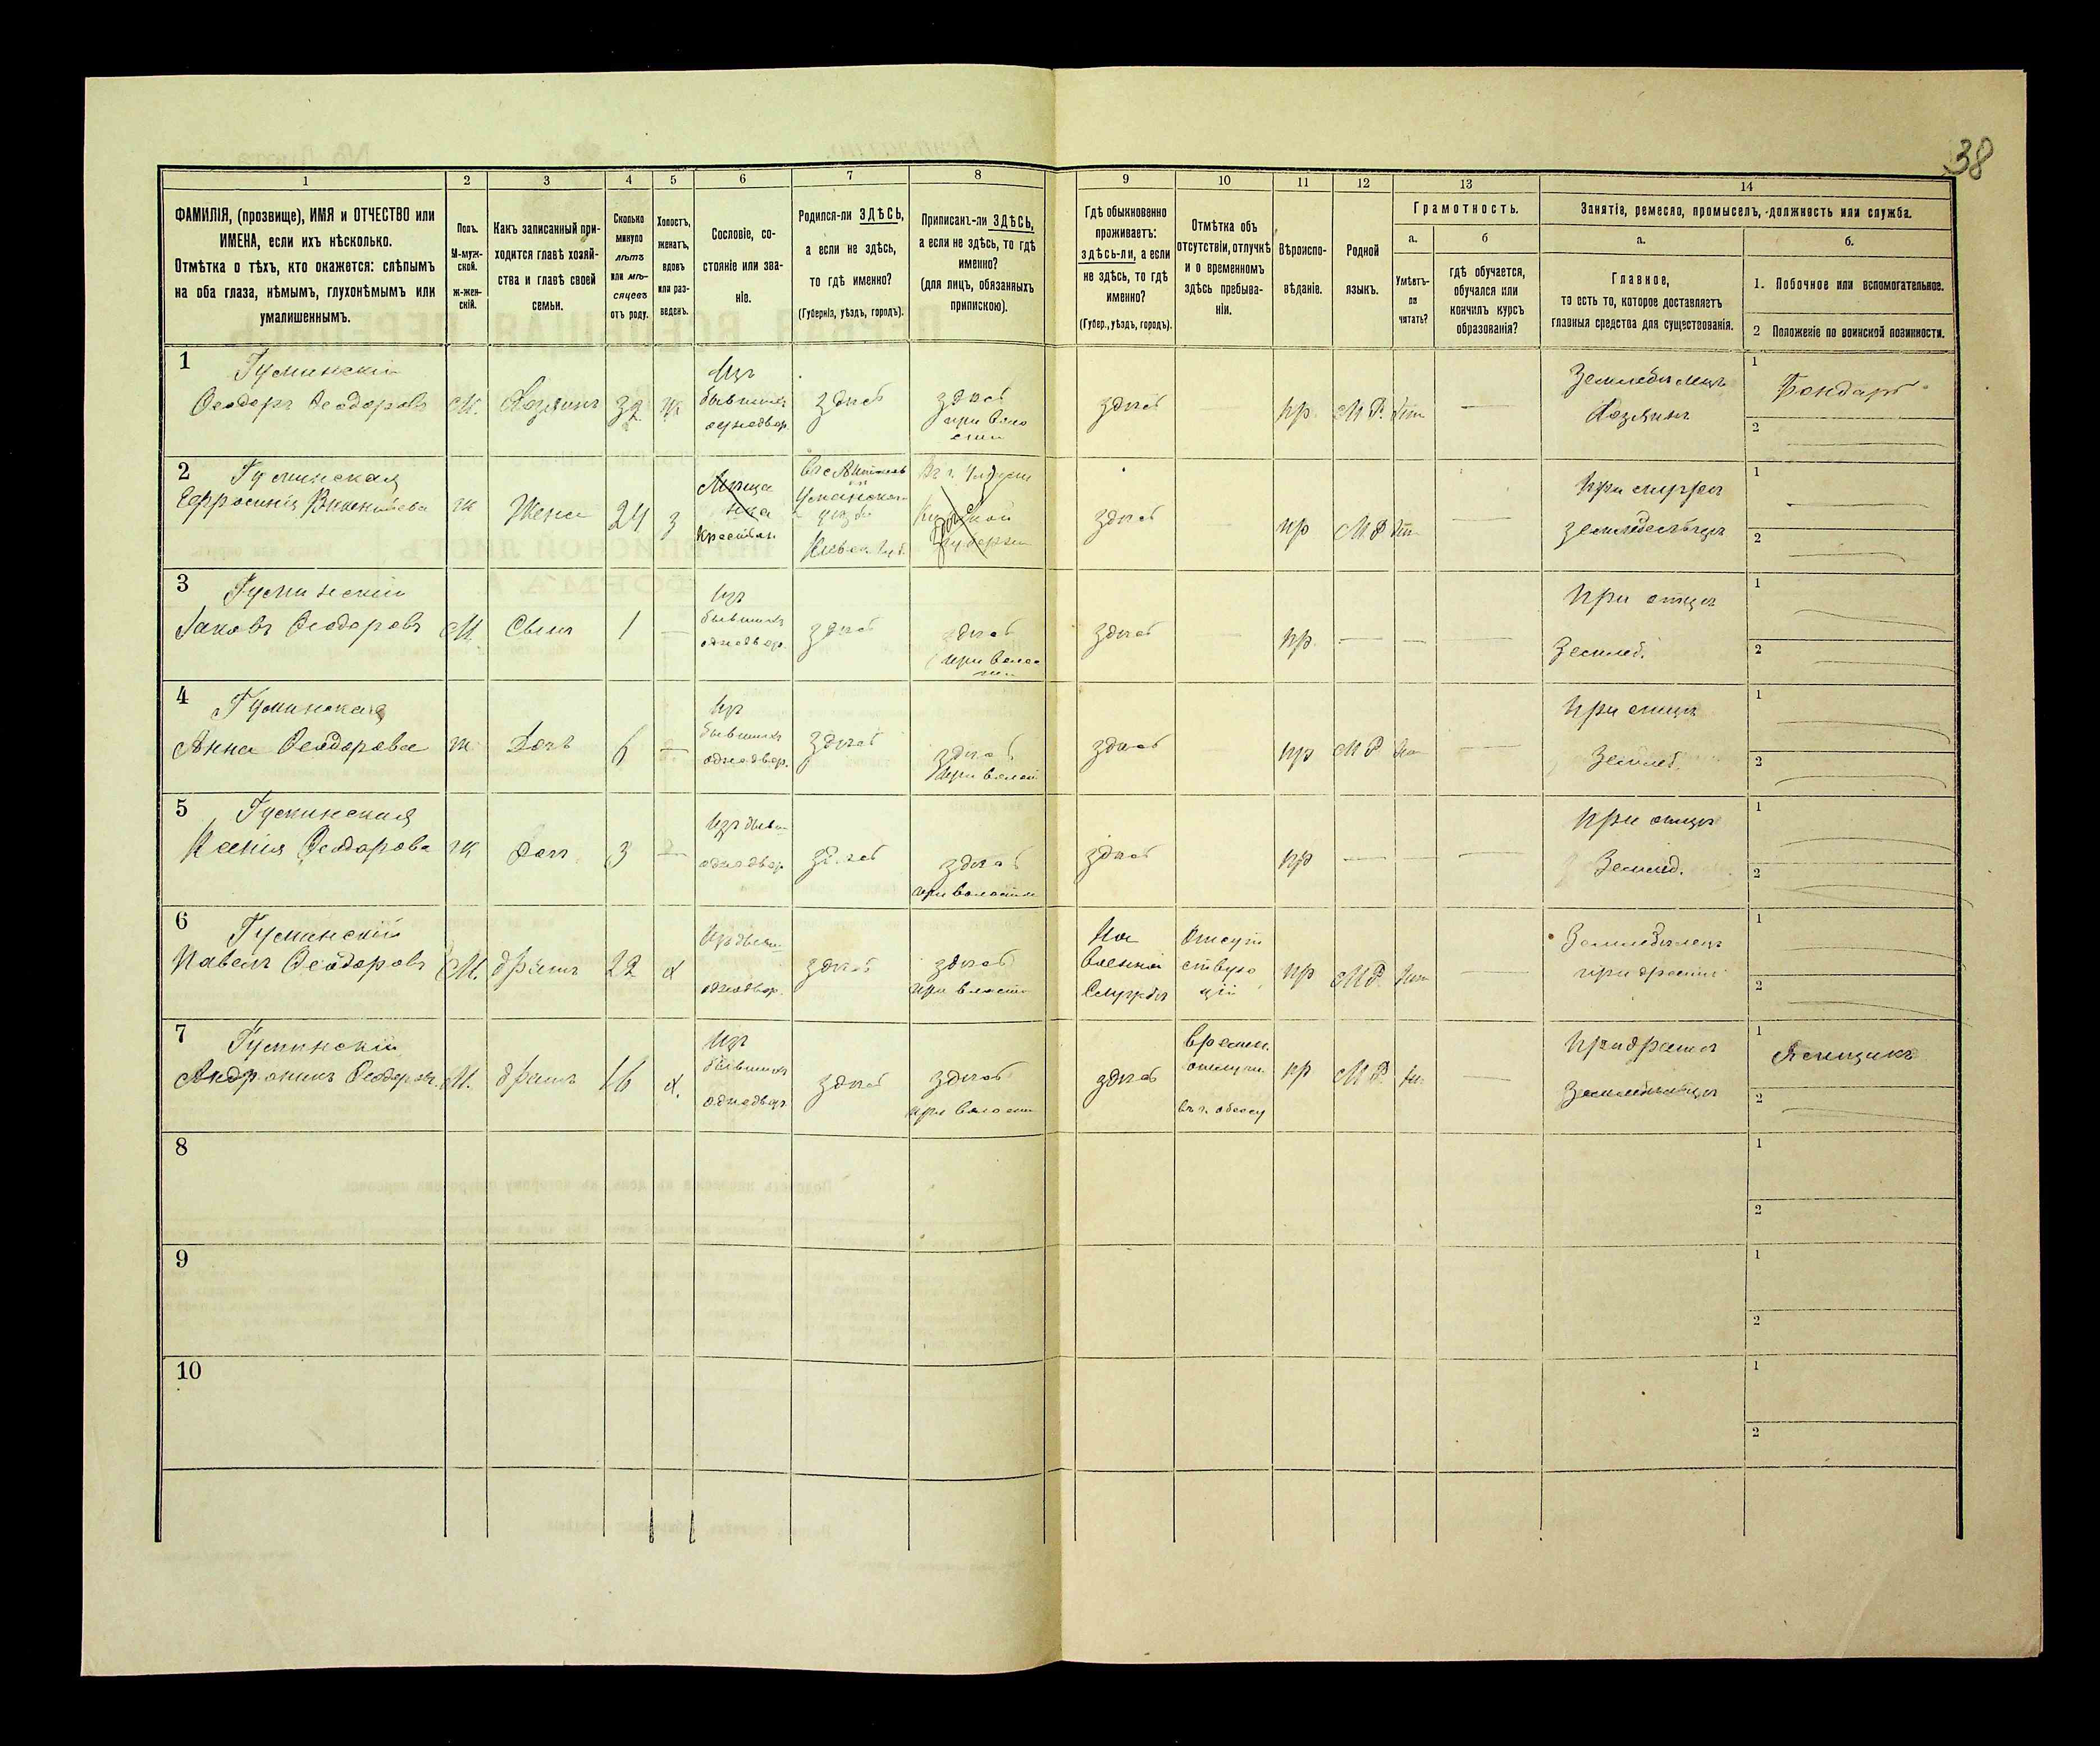 38
1
2
3
4
5
6
7
8
9
10
11
12
13
14
ФАМИЛІЯ, (прозвище), ИМЯ и ОТЧЕСТВО или
ИМЕНА, если ихъ нѣсколько.
Отмѣтка о тѣхъ, кто окажется: слѣпымъ
на оба глаза, нѣмымъ, глухонѣмымъ или
умалишеннымъ.
Полъ.
М-муж-
ской.
ж-жен-
скій.
Какъ записанный при-
ходится главѣ хозяй-
ства и главѣ своей
семьи.
Сколько
минуло
лѣтъ
или мѣ-
сяцевъ
отъ роду.
Холостъ,
женатъ,
вдовъ
или раз-
веденъ.
Сословіе, со-
стояніе или зва-
ніе.
Родился-ли ЗДѢСЬ,
а если не здѣсь,
то гдѣ именно?
(Губернія, уѣздъ, городъ).
Приписанъ-ли ЗДѢСЬ,
а если не здѣсь, то гдѣ
именно?
(для лицъ, обязанныхъ
припискою).
Гдѣ обыкновенно
проживаетъ:
здѣсь-ли, а если
не здѣсь, то гдѣ
именно?
(Губер., уѣздъ, городъ).
Отмѣтка объ
отсутствіи, отлучкѣ
и о временномъ
здѣсь пребыва-
ніи.
Вѣроиспо-
вѣданіе.
Родной
языкъ.
Грамотность.
а.
Умѣетъ-
ли
читать?
б
гдѣ обучается,
обучался или
кончилъ курсъ
образованія?
Занятіе, ремесло, промыселъ, должность или служба.
а.
Главное,
то есть то, которое доставляетъ
главныя средства для существованія.
б.
1. Побочное или вспомогательное.
2 Положеніе по воинской повинности.
1
Гусминскій
Ѳеодоръ Ѳеодоровъ
М.
Хозяинъ
32
ж
Изъ
бывшихъ
однодвор.
здѣсь
здѣсь
при воло
сти
здѣсь
пр.
М.Р.
Землевладѣлецъ
Хозяинъ
1
Бондарь
2
2
Гусминская
Ефросинія
ж
Жена
24
з
Мѣща
нка
крестьян.
Уманскаго
уѣзда
Кіевск. губ.
Кіевской
губерніи
здѣсь
пр
М.Р.
При мужѣ
1
2
3
Гусминскій
Іаковъ Ѳеодоровъ
М.
Сынъ
1
Изъ
бывшихъ
однодвор.
здѣсь
здѣсь
при волос
ти
здѣсь
пр.
При отцѣ
Землед.
1
2
4
Гусминская
Анна Ѳеодорова
ж.
Дочь
6
Изъ
бывшихъ
однодвор.
здѣсь
здѣсь
при волост
здѣсь
пр
М.Р.
При отцѣ
Землед.
1
2
5
Гусминская
Ксенія Ѳеодорова
ж
дочь
3
Изъ бывш.
однодвор
здѣсь
здѣсь
при волости
здѣсь
пр
При отцѣ
Землед.
1
2
6
Гусминскій
Павелъ Ѳеодоровъ
М.
братъ
22
х
Изъ бывш.
однодвор.
здѣсь
здѣсь
при волости
На
военной
службѣ
Отсут
ствую
щій
пр
М.Р.
при братѣ
1
2
7
Гусминскій
Андроникъ Ѳеодоров.
М.
братъ
16
х.
Изъ
бывшихъ
однодвор.
здѣсь
здѣсь
при волости
здѣсь
времен.
отлуч.
въ г. Одессу
пр
М.Р.
При братѣ
1
2
8
1
2
9
1
2
10
1
2